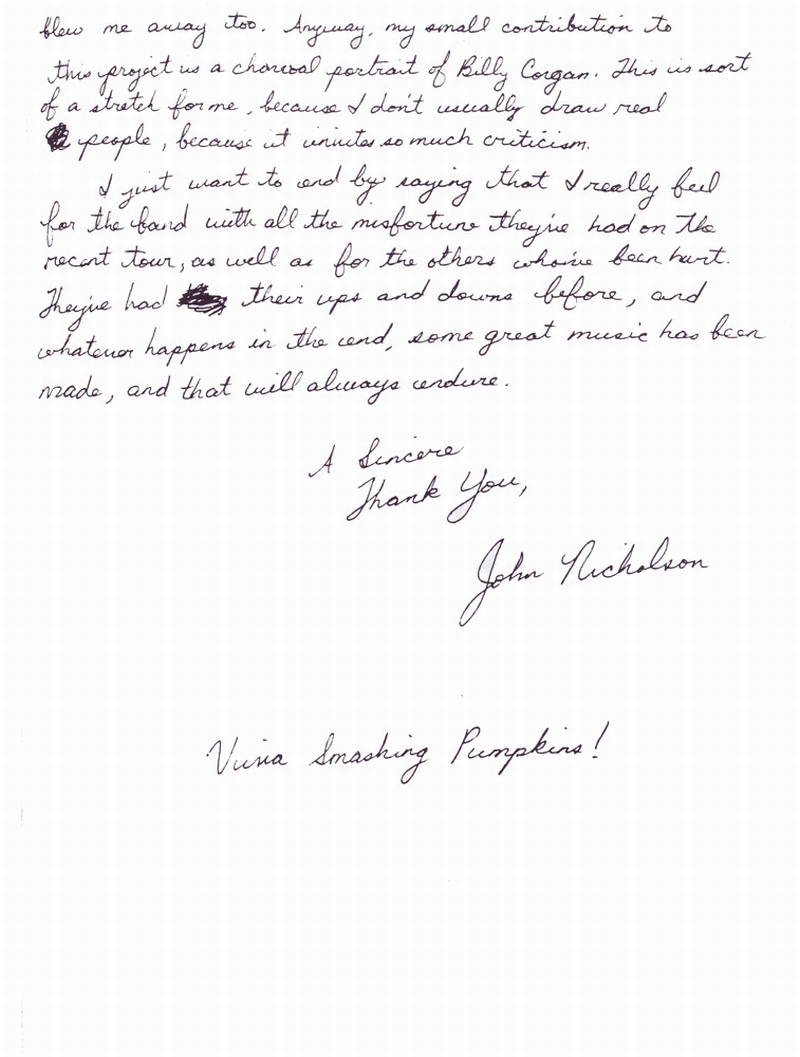 blew me away too. Anyway, my small contribution to
this project is a charcoal portrait of Billy Corgan. This is sort
of a stretch for me, because I don't usually draw real
people, because it invites so much criticism.
I just want to end by saying that I really feel
for the band with all the misfortune they've had on the
recent tour, as well as for the others who've been hurt.
They've had their ups and downs before, and
whatever happens in the end, some great music has been
made, and that will always endure.
A Sincere
Thank You,
John Nicholson
Viva Smashing Pumpkins!